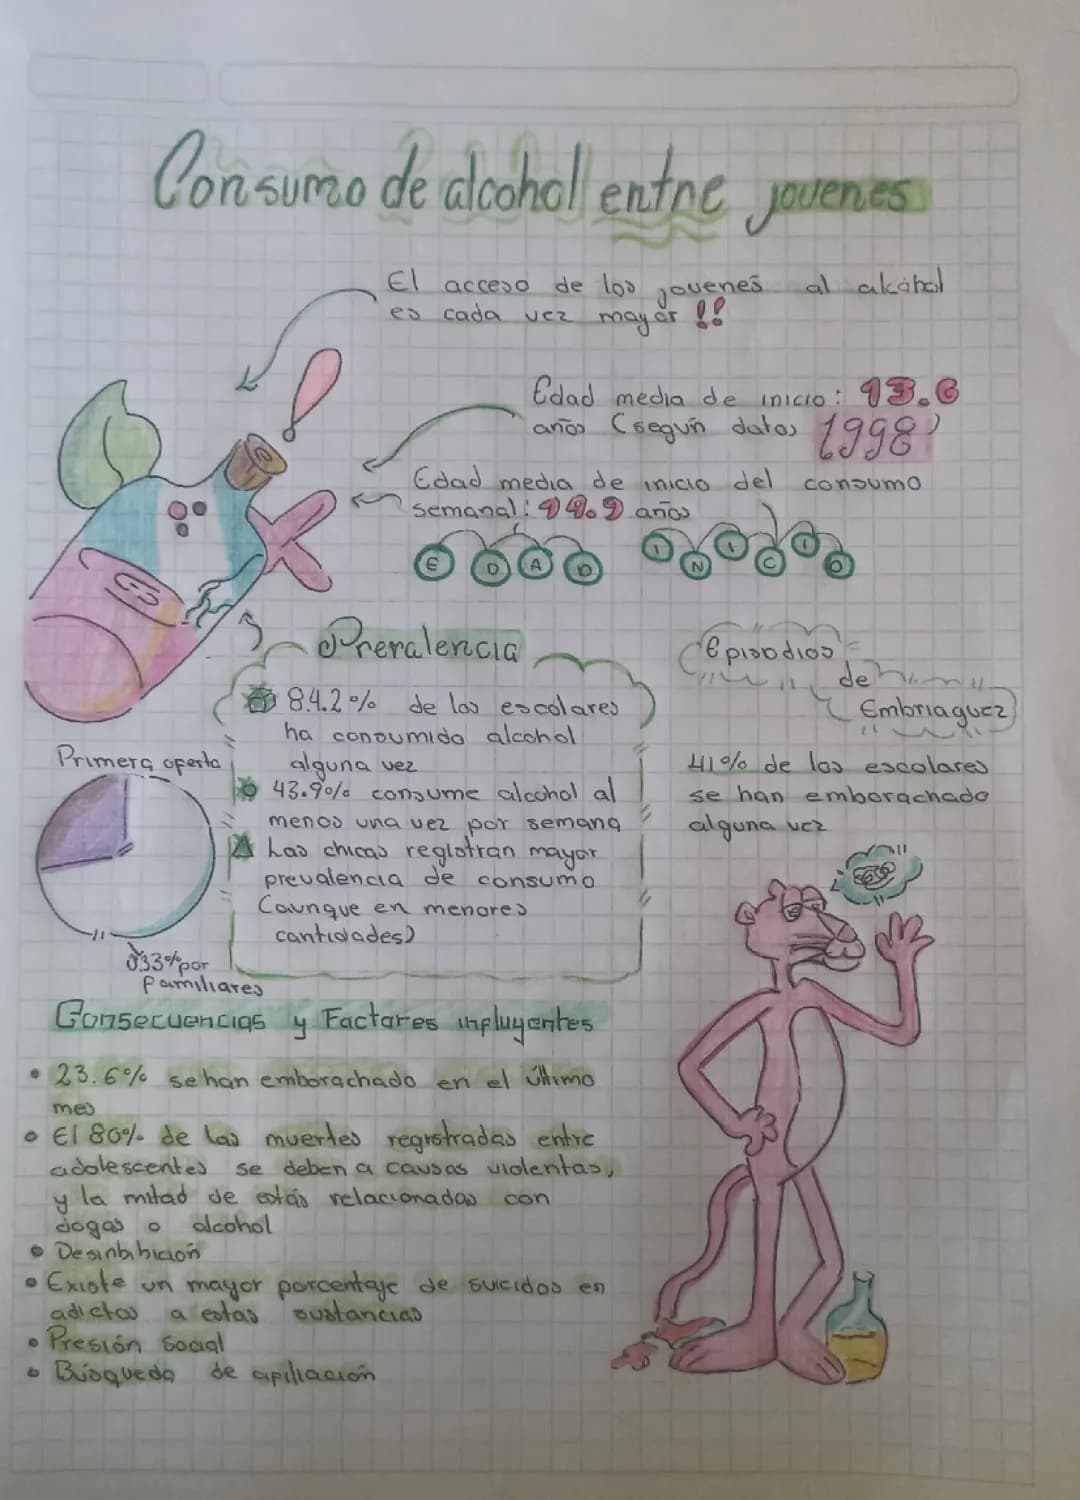 Consumo de alcohol entre jovenes
El acceso de los jovenes al alcohol
es cada vez mayor !!
Edad media de inicio: 13.6
años (según datos 1998)
Edad media de inicio del consumo
semanal: 14.9 años
EDAD INICIO
Preralencia
84.2% de los escolares
ha consumido alcohol
alguna vez
43.9% consume alcohol al
menos una vez por semana
Las chicas registran mayor
prevalencia de consumo
(aunque en menores
cantidades)
Episodios
de
Embriaguez
41% de los escolares
se han emborachado
alguna vez
Primera oferta
33% por
familiares
Consecuencias y Factores influyentes
• 23.6% se han emborachado en el último
mes
• El 80% de las muertes registradas entre
adolescentes se deben a causas violentas,
y la mitad de estás relacionadas con
dogas o alcohol
• Desinhibición
• Existe un mayor porcentaje de suicidos en
adictos a estas sustancias
• Presión Social
• Búsqueda de apiliación